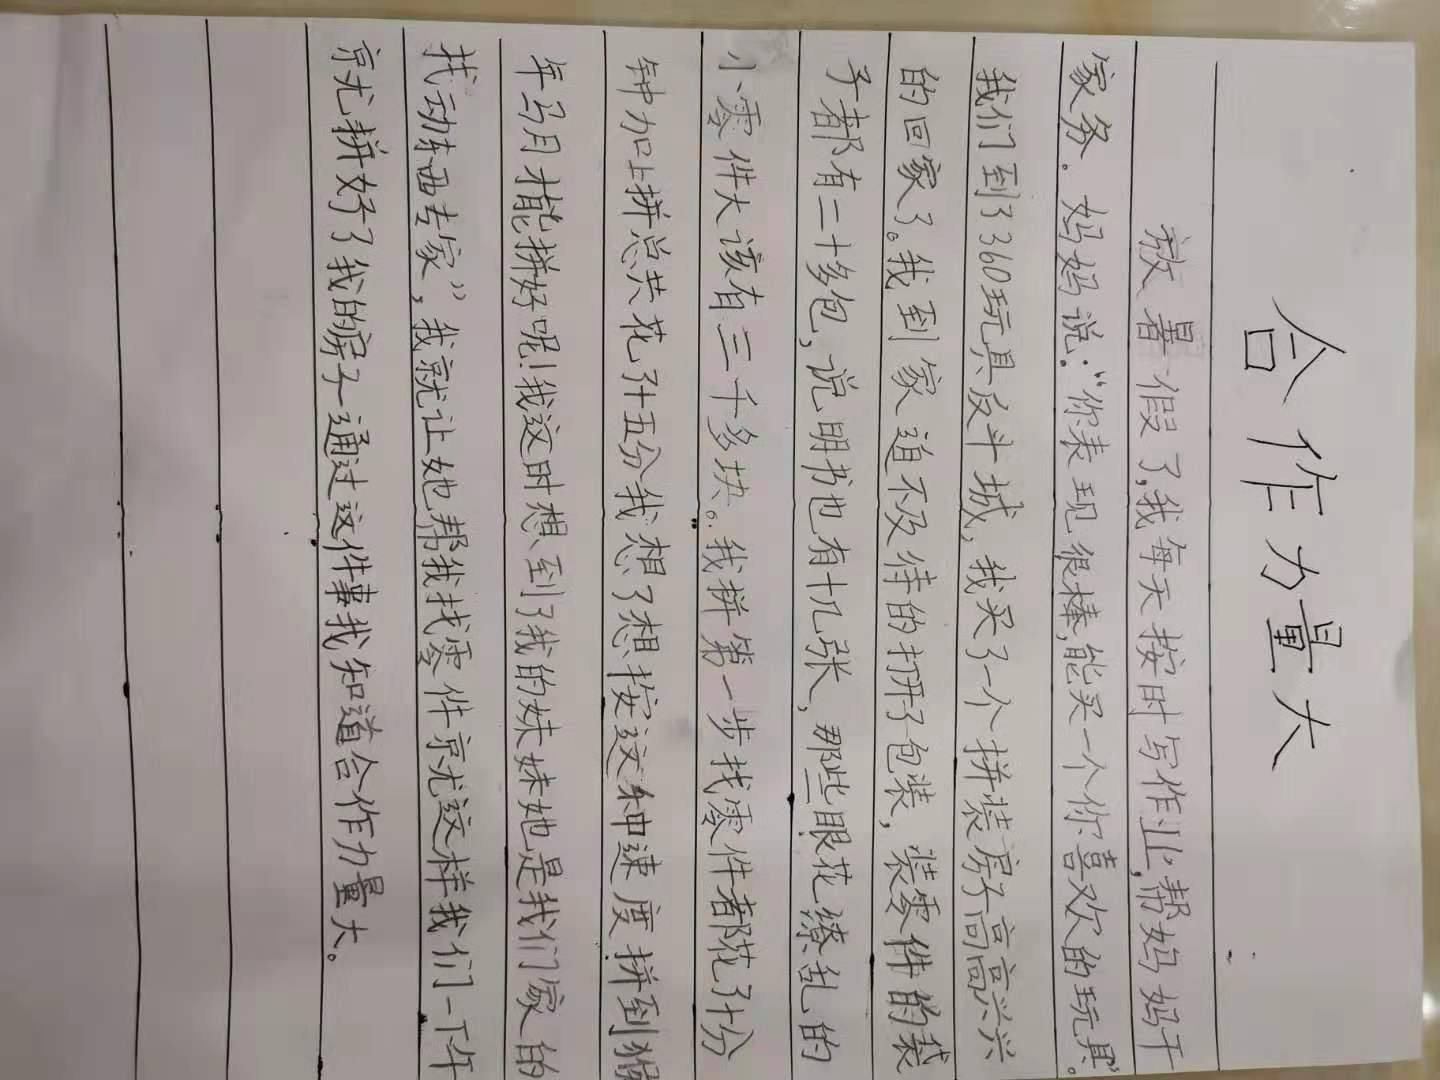 合作力量大
放暑假了,我每天按时写作业,帮妈妈干
家务。妈妈说:“你表现很棒,能买一个你喜欢的玩具。”
我们到了360玩具反斗城,我买了一个拼装房子高高兴兴
的回家了。我到家迫不及待的打开了包装,装零件的袋
子都有二十多包,说明书也有十几张,那些眼花缭乱的
小零件大该有三千多块。我拼第一步找零件都花了十分
钟加上拼总共花了十五分我想了想按这种速度拼到猴
年马月才能拼好呢!我这时想到了我的妹妹她是我们家的
找动东西专家”,我就让她帮我找零件就这样我们一下午
就拼好了我的房子通过这件事我知道合作力量大。